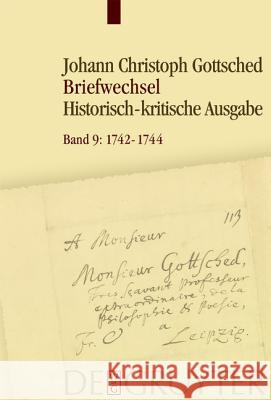 Johann Christoph Gottsched
Briefwechsel
Historisch-kritische Ausgabe
Band 9: 1742-1744
113
A Monsieur
Monsieur Gottsched,
Tres Savant Professeur
extraordinaire, de la
Philosophie & Poesie,
Fr. à
Leipzig.
DE GRUYTER